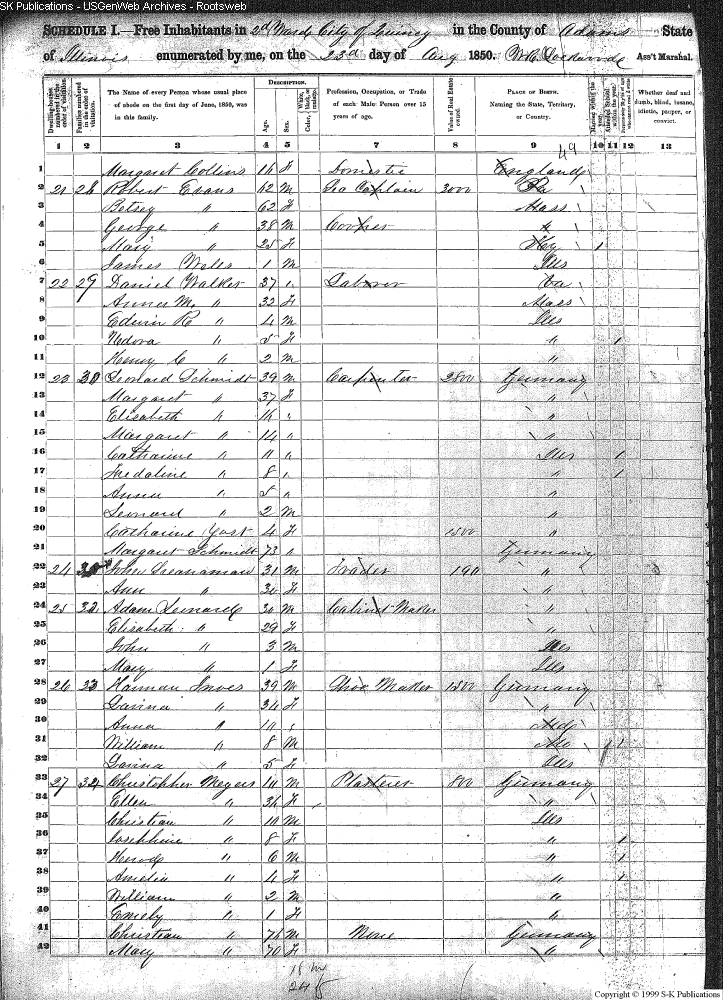 SK Publications - USGenWeb Archives - Rootsweb
SCHEDULE I.—Free Inhabitants in 2d Ward City of Quincy in the County of Adams State
of Illinois enumerated by me, on the 23d day of Aug 1850. Ass't Marshal.
Dwelling-houses numbered in the order of visitation.
Families numbered in the order of visitation.
The Name of every Person whose usual place of abode on the first day of June, 1850, was in this family.
DESCRIPTION.
Age.
Sex.
Color, White, black, or mulatto.
Profession, Occupation, or Trade of each Male Person over 15 years of age.
Value of Real Estate owned.
PLACE OF BIRTH. Naming the State, Territory, or Country.
Married within the year.
Attended School within the year.
Whether deaf and dumb, blind, insane, idiotic, pauper, or convict.
1 2 3 4 5 6 7 8 9 10 11 12 13
49
1 Margaret Collins 16 F Domestic England
2 21 28 Robert Evans 62 M Sea Captain 3000
3 Betsey " 62 F Mass
4 George " 38 M Cooper
5 Mary " 25 F Ky 1
6 James 1 M Ills
7 22 29 Daniel Walker 37 " Laborer
8 Anna M. " 32 F Mass
9 Edwin R " 4 M Ills
10 " 5 F " 1
11 Henry C " 2 M "
12 23 30 Leonard Schmidt 39 M Carpenter 2800 Germany
13 Margaret " 37 F "
14 Elisabeth " 16 " "
15 Margaret " 14 " "
16 Catharine " 11 " Ills 1
17 " 8 " " 1
18 Anna " 5 " "
19 Leonard " 2 M "
20 Catharine Yost 4 F 1500 "
21 Margaret Schmidt 73 " Germany
22 24 John 31 M Trader "
23 Ann " 30 F "
24 25 32 Adam Leonard 30 M Cabinet Maker "
25 Elisabeth " 29 F "
26 John " 3 M Ills
27 Mary " 1 F Ills
28 26 33 Harman 39 M Shoe Maker 1500 Germany
29 " 34 F "
30 Anna " 10 "
31 William " 8 M Mo 1
32 " 5 F Ills
33 27 34 Christopher Meyers M Plasterer 800 Germany
34 Ellen " 36 F "
35 Christian " 10 M Ills
36 Josephine " 8 F " 1
37 " 6 M " 1
38 Amelia " 4 F " 1
39 William " 2 M "
40 Emely " 1 F "
41 Christian " 76 M None Germany
42 Mary " 70 F "
18 m
Copyright © 1999 S-K Publications